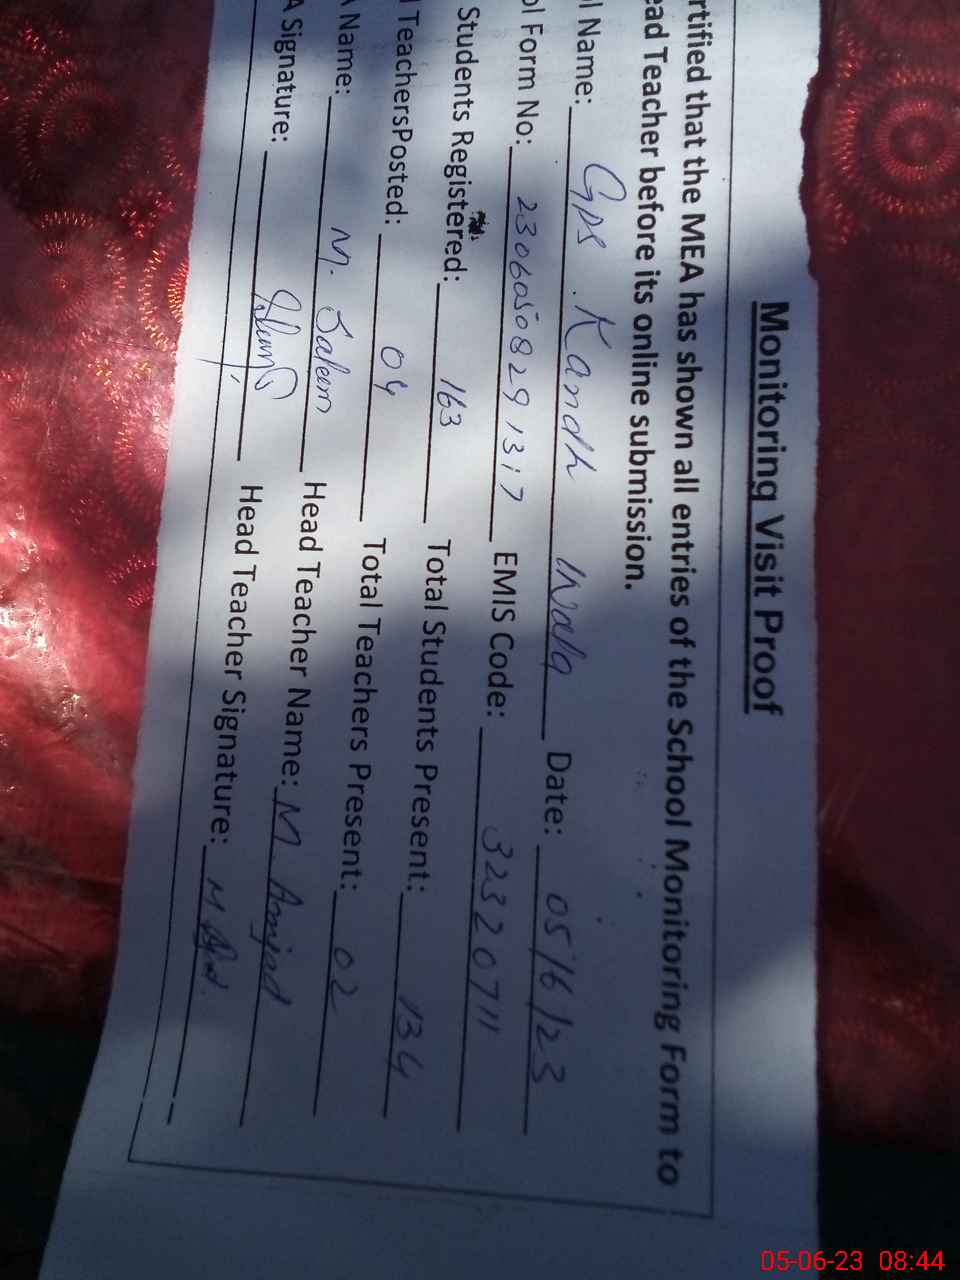 Monitoring Visit Proof
rtified that the MEA has shown all entries of the School Monitoring Form to
ead Teacher before its online submission.
l Name: Gps. Kandh Walla Date: 05/6/23
ol Form No: 23060508291317 EMIS Code: 32320711
Students Registered: 163 Total Students Present: 134
l TeachersPosted: 04 Total Teachers Present: 02
A Name: M. Saleem Head Teacher Name: M. Amjad
A Signature: Head Teacher Signature: M
05-06-23 08:44